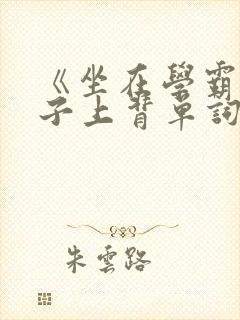 《坐在學霸
子上背單詞
朱雲路